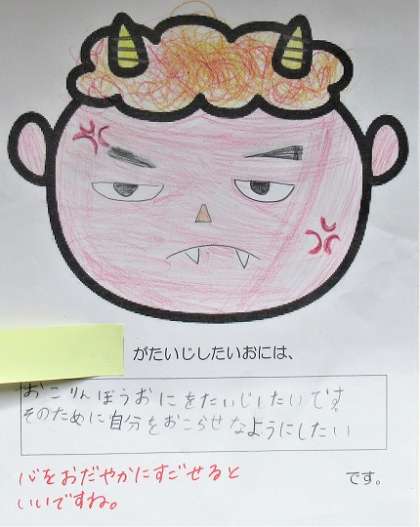 がたいじしたいおには、
おこりんぼうおにをたいじしたいです
そのために自分をおこらせなようにしたい
です。
心をおだやかにすごせると
いいですね。